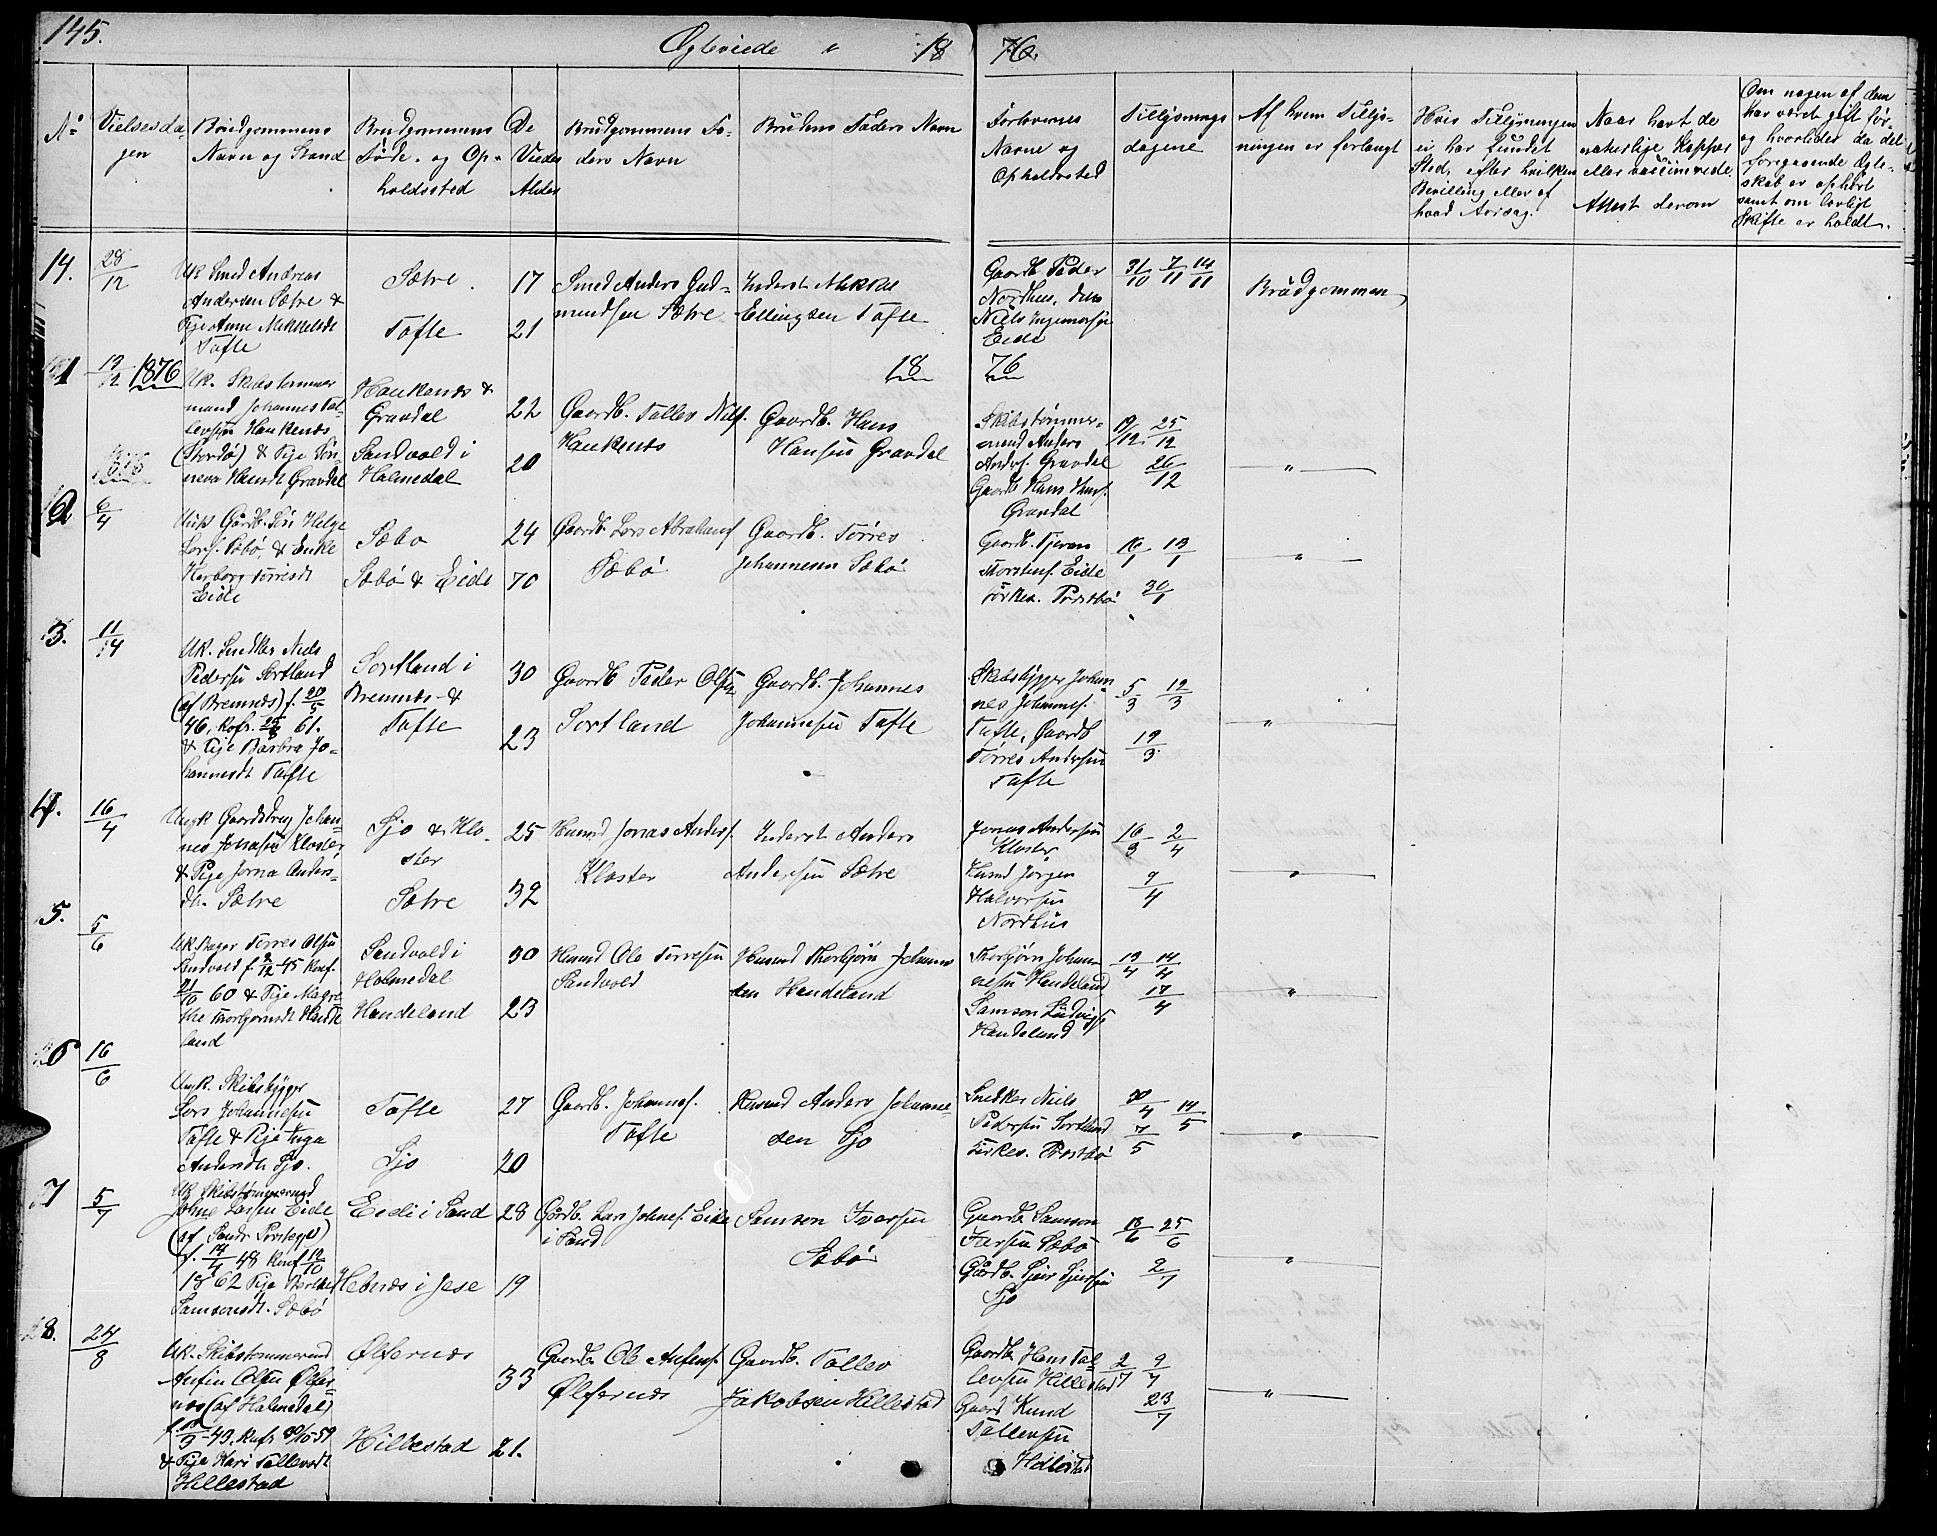 145.
Ægteviede " 18 76.
No
Vielsesda
gen
Brudgommens
Navn og Stand
Brudgommens
Føde- og Op-
holdssted
De
Viedes
Alder
Brudgommens Fa-
ders Navn
Brudens Faders Navn
Forlovernes
Navne og
Opholdssted
Tillysnings
dagene
Af hvem Tillys-
ningen er forlangt
Hvis Tillysningen
ei har fundet
Sted, efter hvilken
Bevilling eller af
hvad Aarsag.
Naar havt de
naturlige Kopper
eller vaccinerede.
Attest derom
Om nogen af dem
har været gift før,
og hvorledes da det
foregaaende Ægte-
skab er ophørt
samt om lovligt
Skifte er holdt.
14.
28/12
Uk Smed Andreas
Andersen Sætre &
Pige Anne Mikkelsdt
Tofte
Sætre
Tofte
17
21
Smed Anders Gud-
mundsen Sætre
Inderst Mikkel
Ellingsen Tofte
Gaardb. Peder
Nordhus,
Niels Ingemorsen
Eide
31/10 7/11 14/11
Brudgommen
18 76
1
1876
Uk. Skibstømmer
mand Johannes Tol-
levsen Haukenæs
(Stordø) & Pige Søn-
neva Hansdt Gravdal
Haukenæs &
Gravdal
Sandvold i
Holmedal
22
20
Gaardb. Tollev Nilss.
Haukenæs
Gaardb. Hans
Hansen Gravdal
Skibstømmer-
mand Anders
Anders. Gravdal
Gaardb Hans Hans.
Gravdal
19/12 25/12
26/12
"
2
6/4
Gårdb. Søn Helge
Lars. Sæbø & Enke
Herborg Torrisdt
Eide
Sæbo
Sæbø & Eide
24
70
Gaardb Lars Abrahams
Sæbø
Gaardb. Tørres
Johannesen Sæbø
Gaardb.
Thorstens. Eide
Kirkes. Prestbø
16/1 13/1
30/1
"
3.
11/4
Uk. Snedker Niels
Pedersen Sortland
(af Bremnes) f. 20/5
46, Kofr. 61.
& Pige Barbra Jo-
hannesdt Tofte
Sortland i
Bremnes &
Tofte
30
23
Gaardb Peder Olsen
Sortland
Gaardb. Johannes
Johannesen Tofte
Skibsbygger Johan
nes Johannes.
Tofte, Gaardb
Tørres Andersen
Tofte
5/3 12/3
19/3
"
4.
16/4
Ungk Gaardsdreng Johan-
nes Jonasen Kloster,
& Pige Jorna Anders-
dtr. Sætre
Sjo & Klo-
ster
Sætre
25
32
Husmd Jonas Anders.
Kloster
Inderst Anders
Andersen Sætre
Jonas Andersen
Kloster,
Husmd Jørgen
Halvorsen
Nordhus
16/3 2/4
9/4
"
5.
5/6
Uk. Bager Torres Olsen
Sandvold f. 45 Konf.
60 & Pige Magre-
the Thorbjørnsdt Hande
land
Sandvold i
Holmedal
Handeland
30
23
Husmd Ole Torresen
Sandvold
Husmd Thorbjørn Johanne
sen Handeland
Thorbjørn Johan-
nesen Handeland
Samson Ludvigs
Handeland
13/4 14/4
17/4
"
6
16/6
Ungk. Skibsbygger
Lars Johannesen
Tofte & Pige Inga
Andersdtr Sjo.
Tofte
Sjo
27
20
Gaardb. Johannes.
Tofte
Husmd Anders Johanne-
sen Sjo
Snedker Niels
Pedersen Sortland
Kirkes. Prestbø
30/4 14/5
7/5
"
7
5/7
Uk Skibstømmermd
Johne Larsen Eide
(af Sands Prstegjd)
f. 19/4 48 Konf 12/10
1862 Pige
Samsonsdt. Sæbø
Eide i Sand
i Jese
28
19
Gårdb. Lars Johnes. Eide
i Sand
Samson Iversen
Sæbø
Gaardb. Samson
Iversen Sæbø
Gårdb.
Sjo
18/6 25/6
2/7
"
8.
24/8
Uk. Skibstømmermd
Anfin Olsen Ølfer-
næs (af Holmedal)
43. Kofr 30/10 59
& Pige Kari Tollevsdt
Hillestad
Ølfernæs
Hillestad
33
21.
Gaardb. Ole Anfins.
Ølfernæs
Gaardb. Tollev
Jakobsen Hillestad
Gaardb. Hans Tol-
levsen Hillestad
Gaard Knud
Tollevsen
Hillestad
2/7 9/7
23/7
"